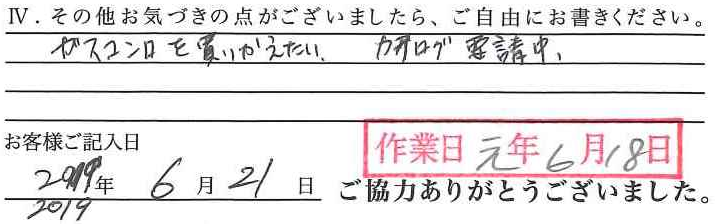 Ⅳ．その他お気づきの点がございましたら、ご自由にお書きください。
ガスコンロを買いかえたい、カタログ要請中、
お客様ご記入日
作業日 元年6月18日
2019年 6月21日
2019
ご協力ありがとうございました。